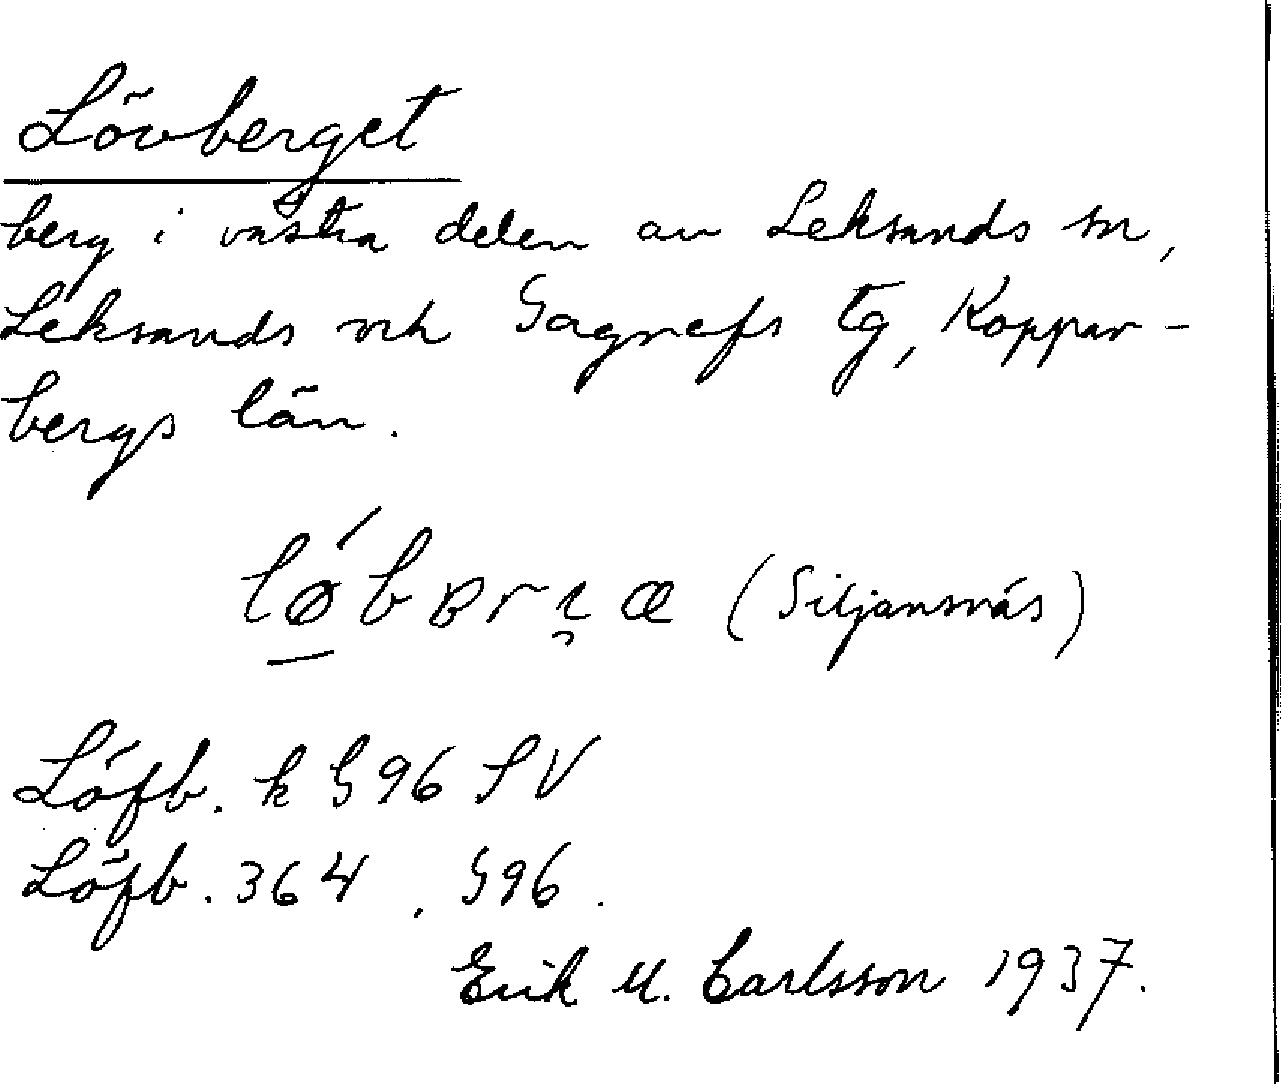 Lövberget
berg i västra delen av Leksands sn,
Leksands och Gagnefs tg, Koppar-
bergs län.
(Siljansnäs)
Löfb. k G96 SV
Löfb. 364, G96.
Erik M. Carlsson 1937.